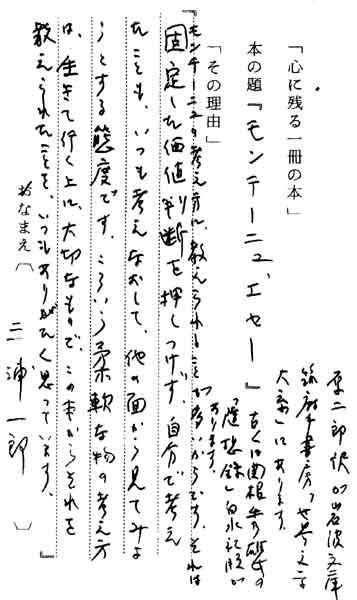 「心に残る一冊の本」
本の題『モンテーニュ、エセー』
原二郎訳が岩波文庫
筑摩書房「世界文学
大系」にあります。
古くは関根秀雄の
「随想録」白水社版が
あります。
「その理由」
『モンテーニュの考え方に、教えられることが多いからです。それは
固定した価値判断を押しつけず、自分で考え
たことも、いつも考えなおして、他の面から見てみよ
うとする態度です。こういう柔軟な物の考え方
は、生きて行く上に、大切なもので、この本からそれを
教えられたことを、いつもありがたく思っています。』
おなまえ〔三浦一郎〕